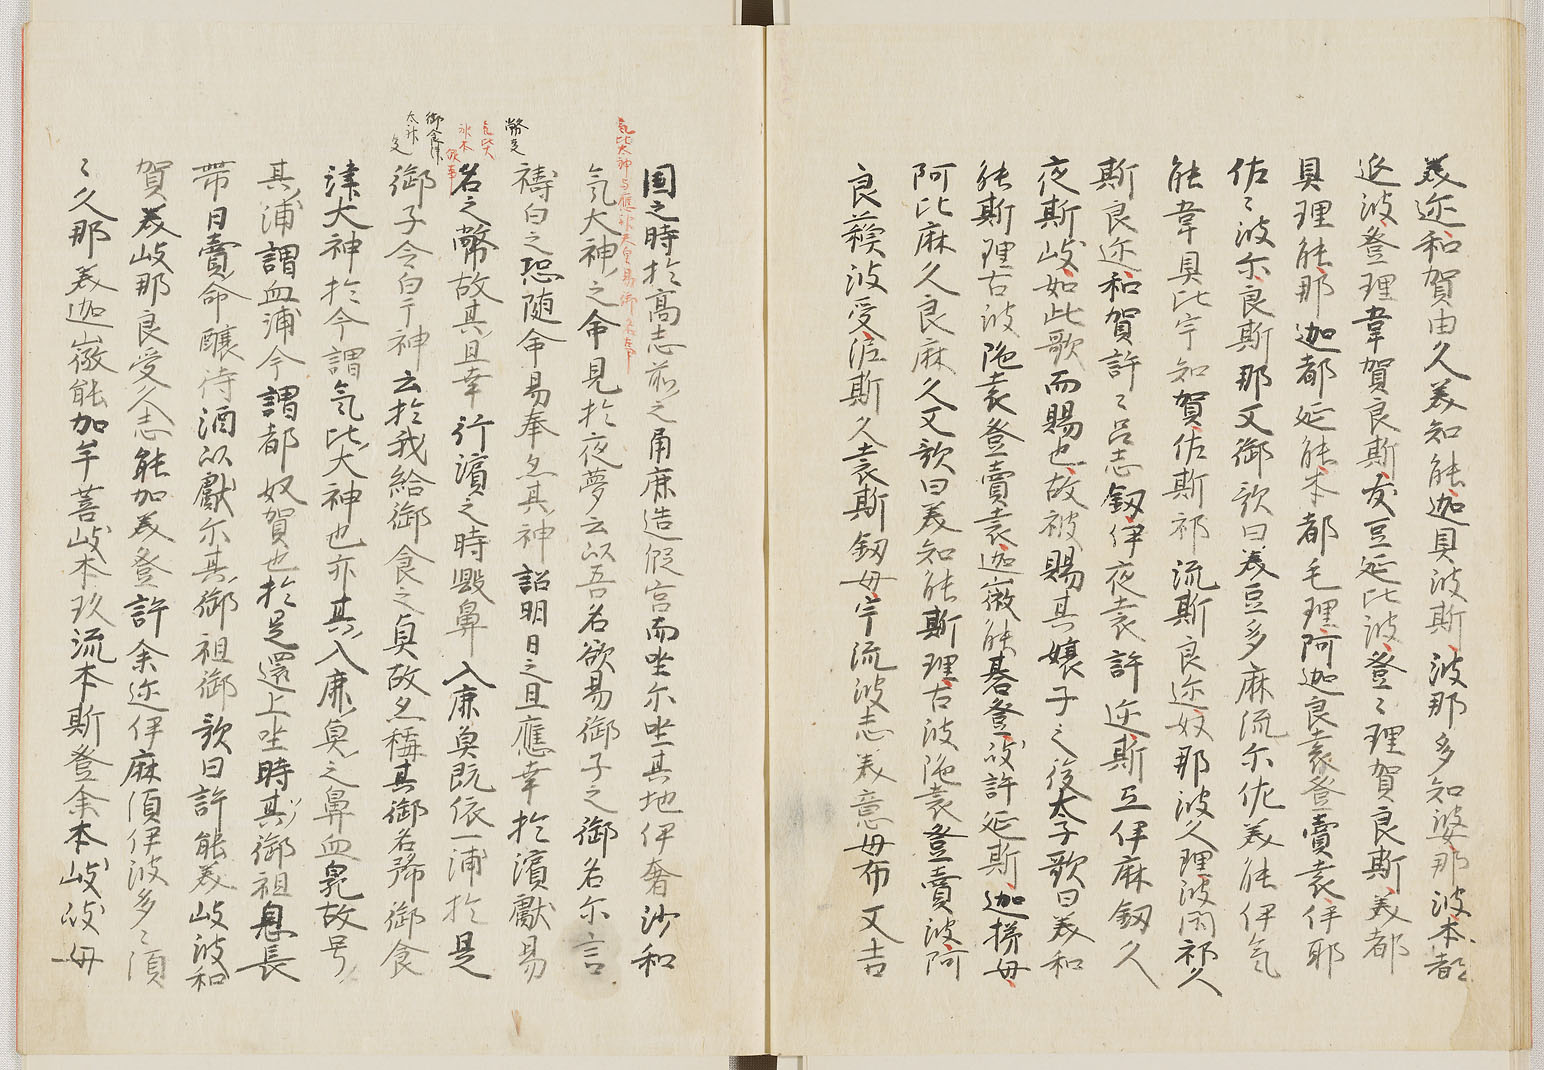 美迩和賀由久美知能迦具波斯波那多知婆那波本都延
波登理韋賀良斯支豆延比波登々理賀良斯美都
具理能那迦都延能本都毛理阿迦良袁登賣袁伊耶
佐々波尔良斯那又御歌曰美豆多麻流尔佐美能伊氣
能韋具比宇知賀佐斯祁流斯良迩奴那波久理波閇祁久
斯良迩和賀許々呂志釼伊夜袁許迩斯弖伊麻釼久
夜斯岐如此歌而賜也故被賜其嬢子之後太子歌曰美和
能斯理古波陁袁登賣袁迦微能碁登岐許延斯迦搒毋
阿比麻久良麻久又歌曰美知能斯理古波陁袁登賣波阿
良蘓波受泥斯久袁斯釼毋宇流波志美意毋布又吉
国之時於高志前之角鹿造假宮而坐尔坐其地伊奢沙和
氣大神之命見於夜夢云以吾名欲易御子之御名尔言
禱白之恐随命易奉又其神詔明日之旦應幸於濱獻易
名之幣故其旦幸行濱之時毀鼻入鹿魚既依一浦於是
御子令白于神云於我給御食之魚故又稱其御名号御食
津大神於今謂氣比大神也亦其入鹿魚之鼻血臰故号
其浦謂血浦今謂都奴賀也於是還上坐時其御祖息長
帯日賣命釀待酒以獻尔其御祖御歌曰許能美岐波和
賀美岐那良受久志能加美登許余迩伊麻須伊波多々須
々久那美迦微能加牟菩岐本玖流本斯登余本岐岐毋
氣比大神与應神天皇易御名事
幣是
氣比大
御食津
大神是